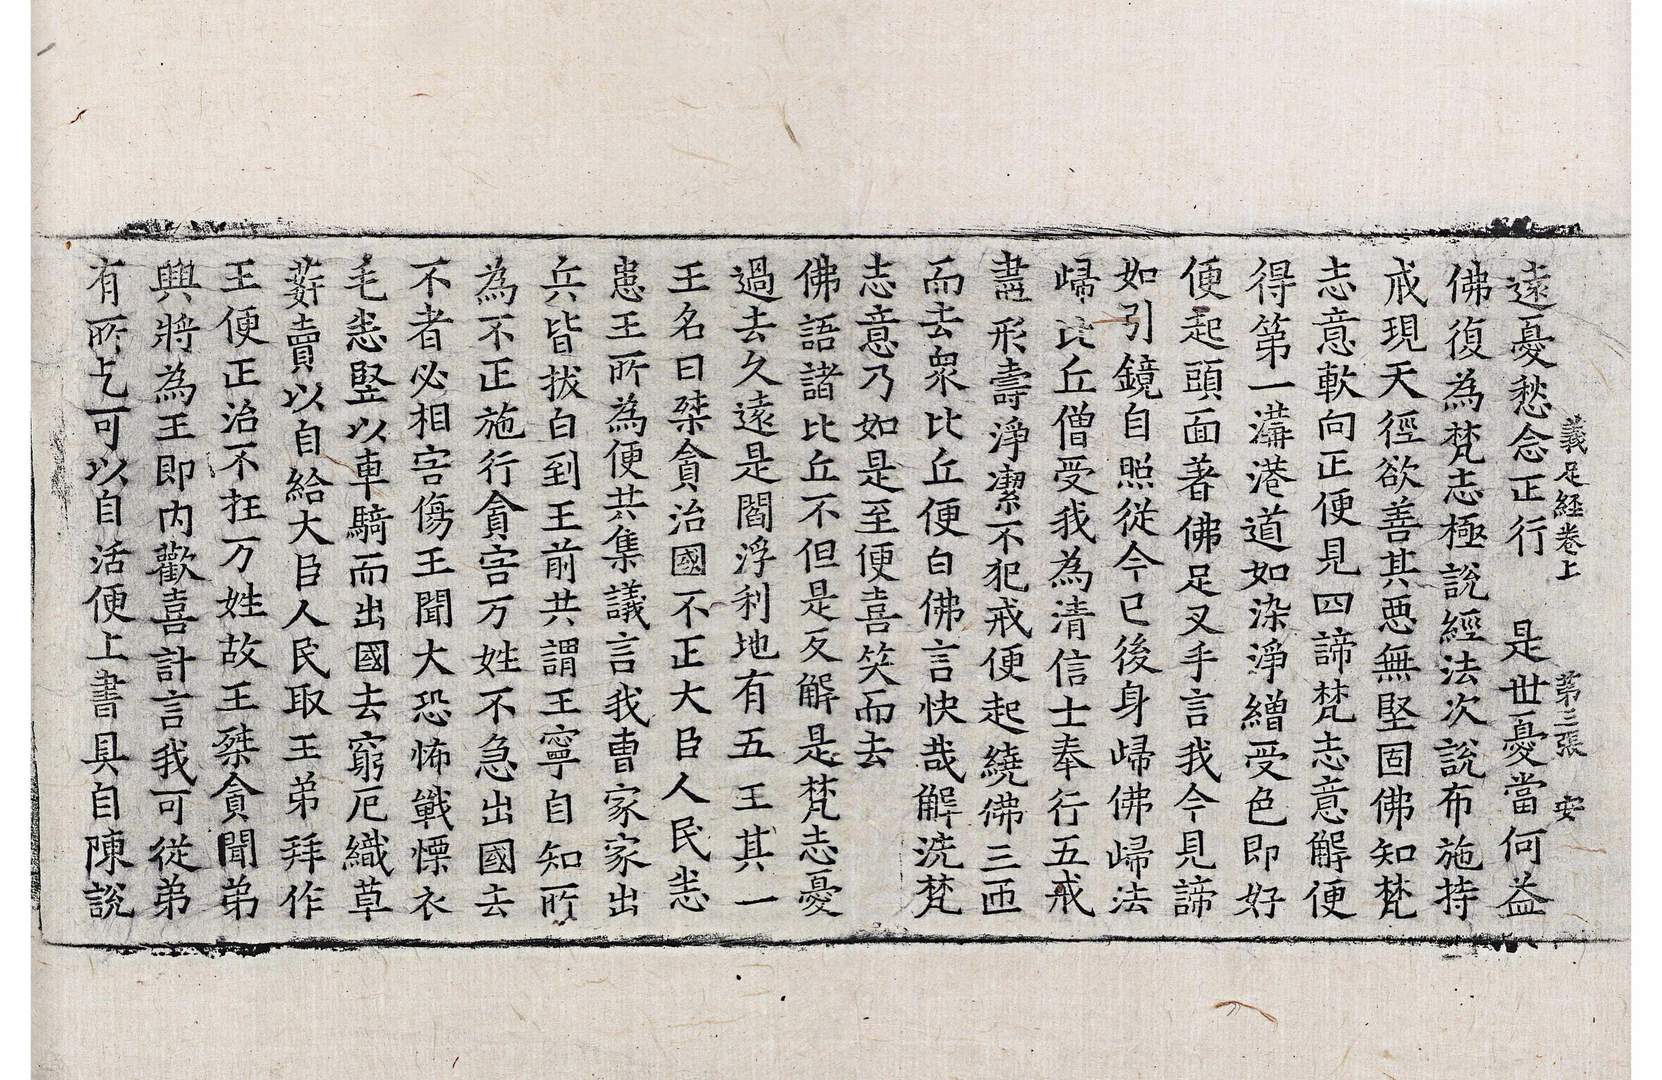 義足經卷上　第三張　安
遠憂愁念正行　是世憂當何益
佛復為梵志極說經法次說布施持
戒現天徑欲善其惡無堅固佛知梵
志意軟向正便見四諦梵志意解便
得第一溝港道如染淨繒受色即好
便起頭面著佛足叉手言我今見諦
如引鏡自照從今已後身歸佛歸法
歸比丘僧受我為清信士奉行五戒
盡形壽淨潔不犯戒便起繞佛三匝
而去衆比丘便白佛言快哉解洗梵
志意乃如是至便喜笑而去
佛語諸比丘不但是反解是梵志憂
過去久遠是閻浮利地有五王其一
王名曰桀貪治國不正大臣人民悉
患王所為便共集議言我曹家家出
兵皆拔白到王前共謂王寧自知所
為不正施行貪害万姓不急出國去
不者必相害傷王聞大恐怖戰慄衣
毛悉竪以車騎而出國去窮厄織草
䔉賣以自給大臣人民取王弟拜作
王便正治不抂万姓故王桀貪聞弟
興將為王即內歡喜計言我可從弟
有所乞可以自活便上書具自陳說